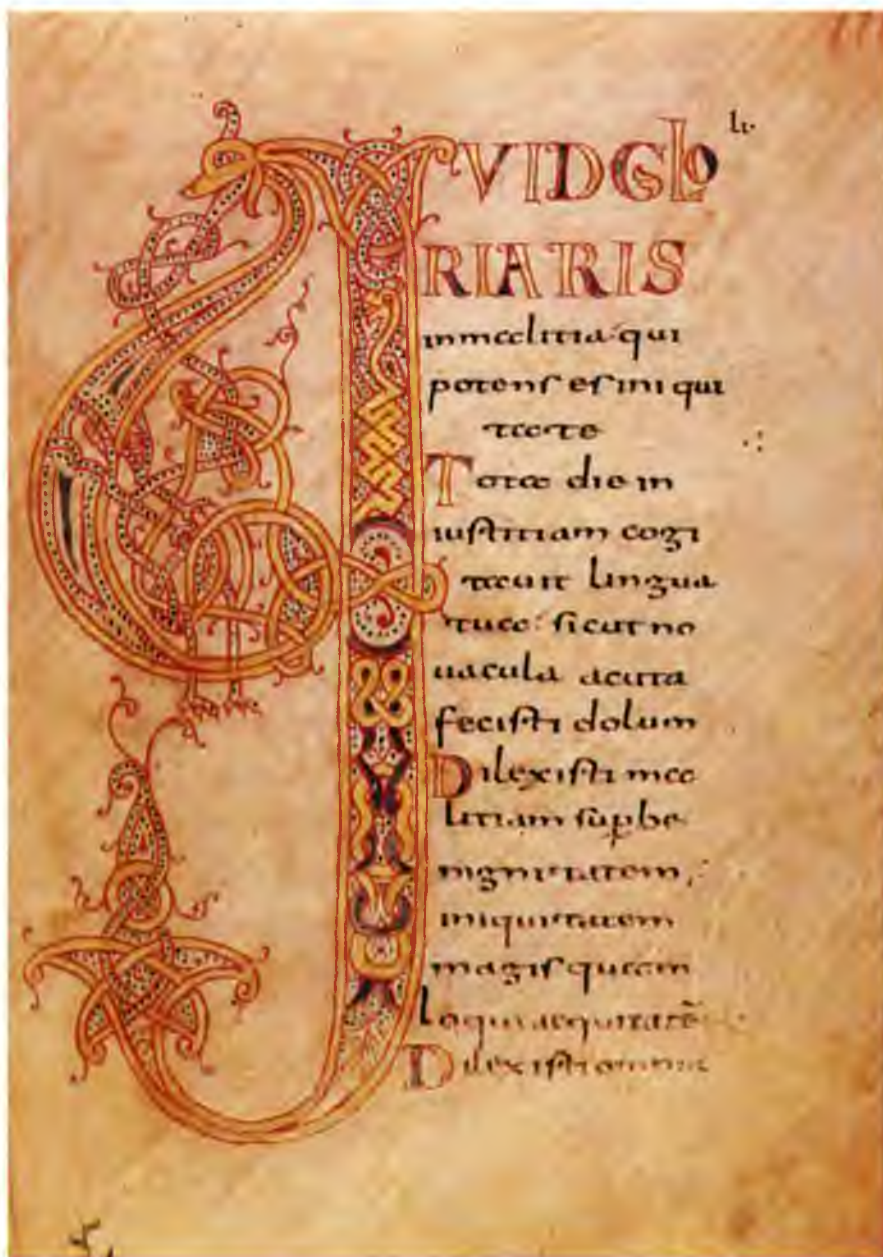 li·
QVID GLO
RIARIS
in malitia· qui
potens es iniqui
tate
Tota die in
iustitiam cogi
tauit lingua
tua· sicut no
uacula acuta
fecisti dolum
Dilexisti ma
litiam sup be
nignitatem,
iniquitatem
magis quam
loqui aequitatē
Dilexisti omnia